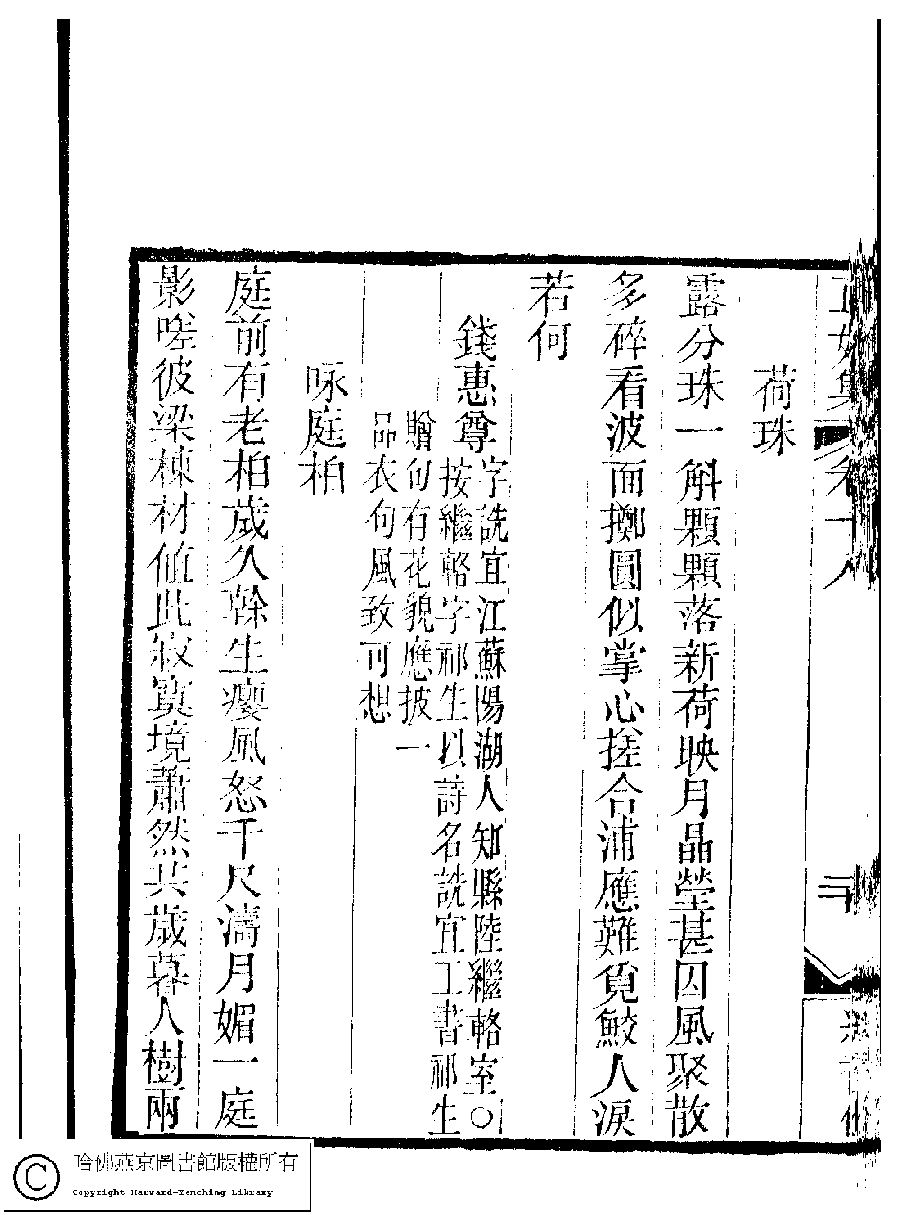 荷珠
露分珠一斛顆顆落新荷映月晶瑩甚因風聚散
多碎看波面擲圓似掌心搓合浦應難覓鮫人淚
若何
錢惠尊
字詵宜江蘇陽湖人知縣陸繼輅室○
按繼輅字祁生以詩名詵宜工書祁生
贈句有花貌應披一
品衣句風致可想
咏庭柏
庭前有老柏歲久幹生癭風怒千尺濤月媚一庭
影嗟彼梁棟材值此寂寞境蕭然共歲暮人樹兩
哈佛燕京圖書館版權所有
Copyright Harvard-Yenching Library